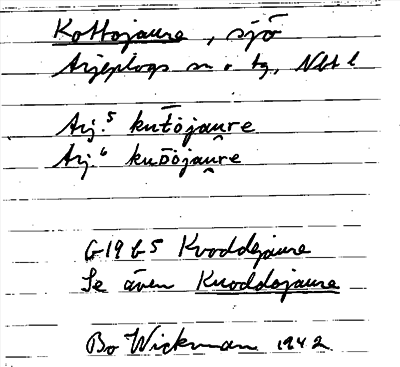 Kottojaure, sjö
Arjeplogs sn o tg, Nbt l
Arj.⁵ kūtójaure
Arj.⁶ kuōójau̯re
G19 b5 Kvoddejaure
Se även Kuoddojaure
Bo Wickman 1942